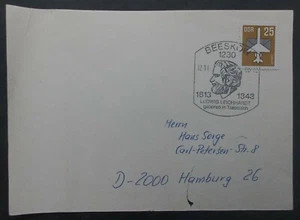 DDR 25
BEESKOW
1230
1813 1848
LUDWIG LEICHHARDT
geboren in Trebatsch
Herrn
Hans Sorge
Carl-Petersen-Str. 8
D-2000 Hamburg 26